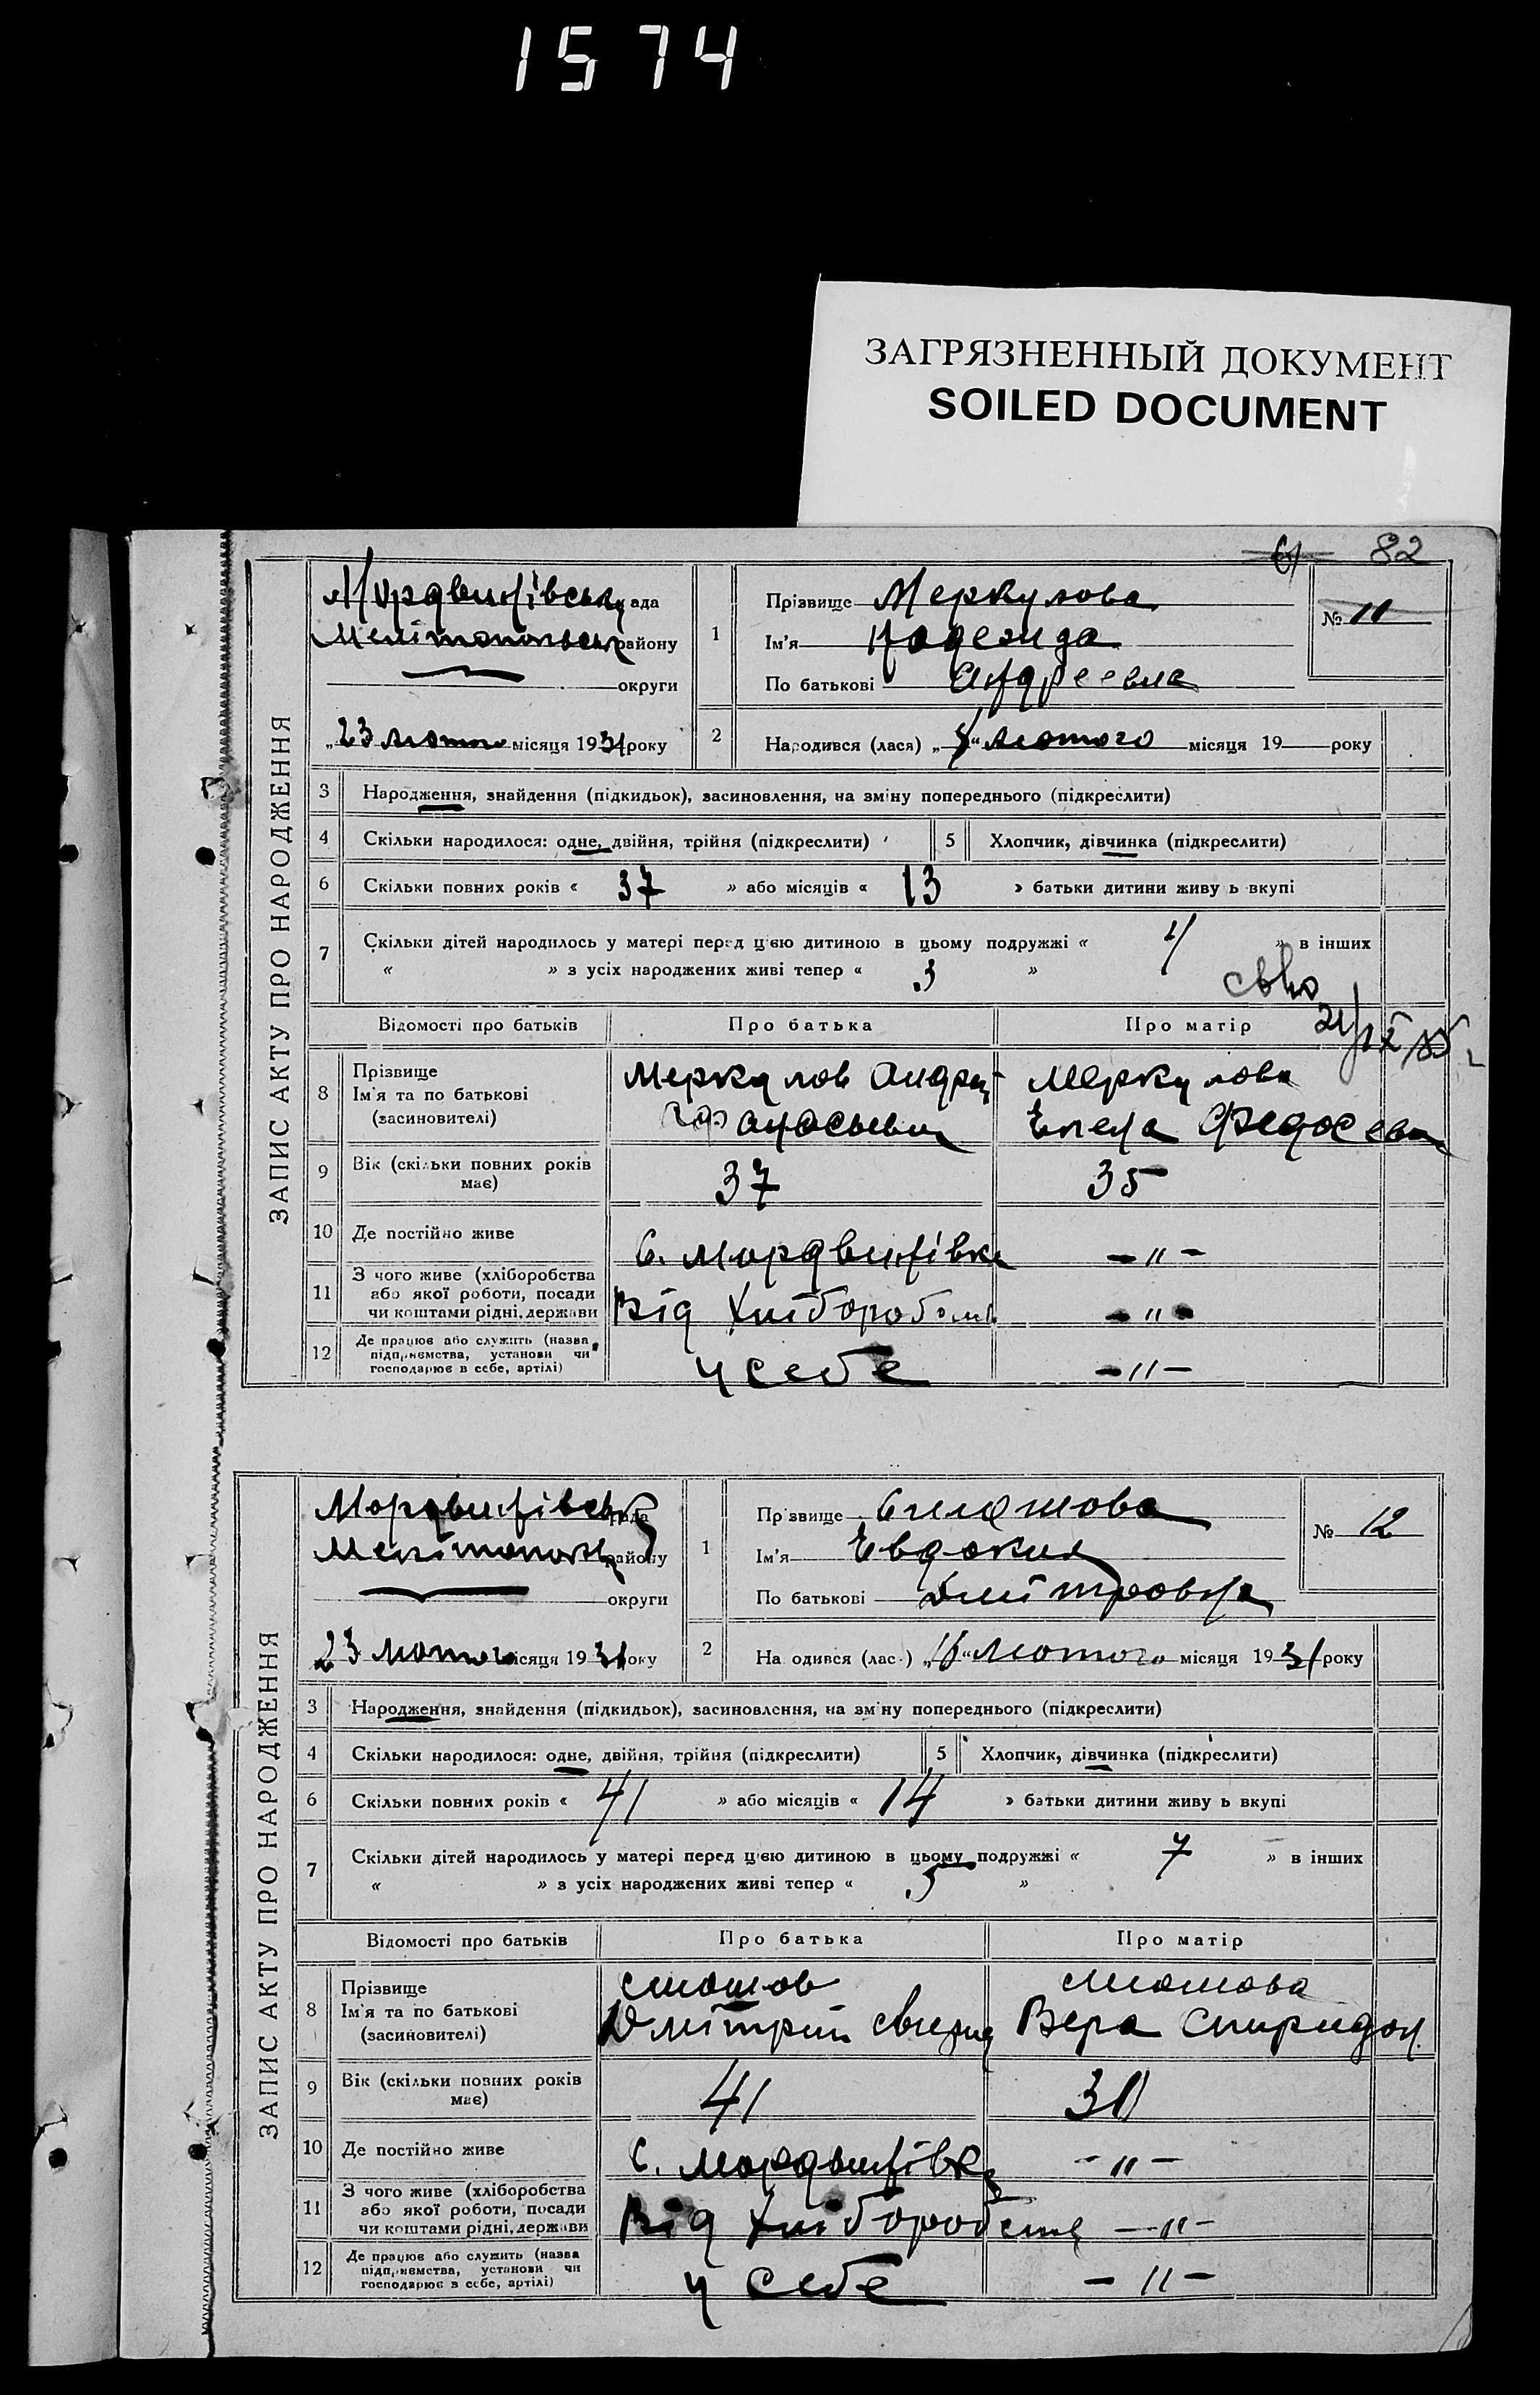 1574
ЗАГРЯЗНЕННЫЙ ДОКУМЕНТ
SOILED DOCUMENT
82
ЗАПИС АКТУ ПРО НАРОДЖЕННЯ
Мордвинівськ рада
Мелітопольськ району
округи
„23 лютого місяця 1931 року
1
Прізвище Меркулова
Ім'я Надежда
По батькові Андреевна
№ 11
2
Народився (лася) „ “ лютого місяця 19 року
3 Народження, знайдення (підкидьок), засиновлення, на зміну попереднього (підкреслити)
4 Скільки народилося: одне, двійня, трійня (підкреслити) 5 Хлопчик, дівчинка (підкреслити)
6 Скільки повних років « 37 » або місяців « 13 » батьки дитини живу ь вкупі
7 Скільки дітей народилось у матері перед цією дитиною в цьому подружжі « 4 » в інших
« » з усіх народжених живі тепер « 3 »
Відомості про батьків Про батька Про матір
8 Прізвище Ім'я та по батькові (засиновителі)
Меркулов Андрій Меркулова
Афанасьевич Елена Федосеевна
9 Вік (скільки повних років має) 37 35
10 Де постійно живе С. Мордвинівка — " —
11 З чого живе (хліборобства або якої роботи, посади чи коштами рідні, держави Від хліборобств — " —
12 Де працює або служить (назва підприємства, установи чи господарює в себе, артілі) у себе — " —
ЗАПИС АКТУ ПРО НАРОДЖЕННЯ
Мордвинівськ рада
Мелітопольськ району
округи
23 лютого місяця 1931 року
1
Прізвище
Ім'я Евдокия
По батькові Дмітровна
№ 12
2
Народився (лас ) „16“ лютого місяця 1931 року
3 Народження, знайдення (підкидьок), засиновлення, на зміну попереднього (підкреслити)
4 Скільки народилося: одне, двійня, трійня (підкреслити) 5 Хлопчик, дівчинка (підкреслити)
6 Скільки повних років « 41 » або місяців « 14 » батьки дитини живу ь вкупі
7 Скільки дітей народилось у матері перед цією дитиною в цьому подружжі « 7 » в інших
« » з усіх народжених живі тепер « »
Відомості про батьків Про батька Про матір
8 Прізвище Ім'я та по батькові (засиновителі)
Дмітрий Вера Спиридон.
9 Вік (скільки повних років має) 41
10 Де постійно живе С. Мордвинівка — " —
11 З чого живе (хліборобства або якої роботи, посади чи коштами рідні, держави Від хліборобств — " —
12 Де працює або служить (назва підприємства, установи чи господарює в себе, артілі) у себе — " —